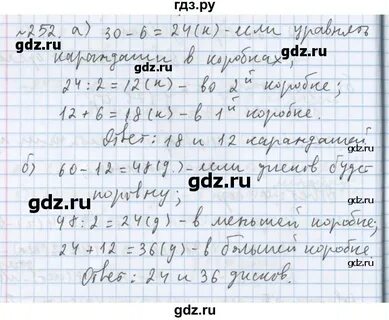 гдз.ру
№252. а) 30-6=24(к)-если уравнять
карандаши в коробках;
24:2=12(к)-во 2й коробке;
12+6=18(к)-в 1й коробке.
Ответ: 18 и 12 карандашей
б) 60-12=48(д)-если дисков будет
поровну;
48:2=24(д)-в меньшей коробке;
24+12=36(д)-в большей коробке.
Ответ: 24 и 36 дисков.
gdz.ru
gdz.ru
gdz.ru
gdz.ru
gdz.ru
gdz.ru
gdz.ru